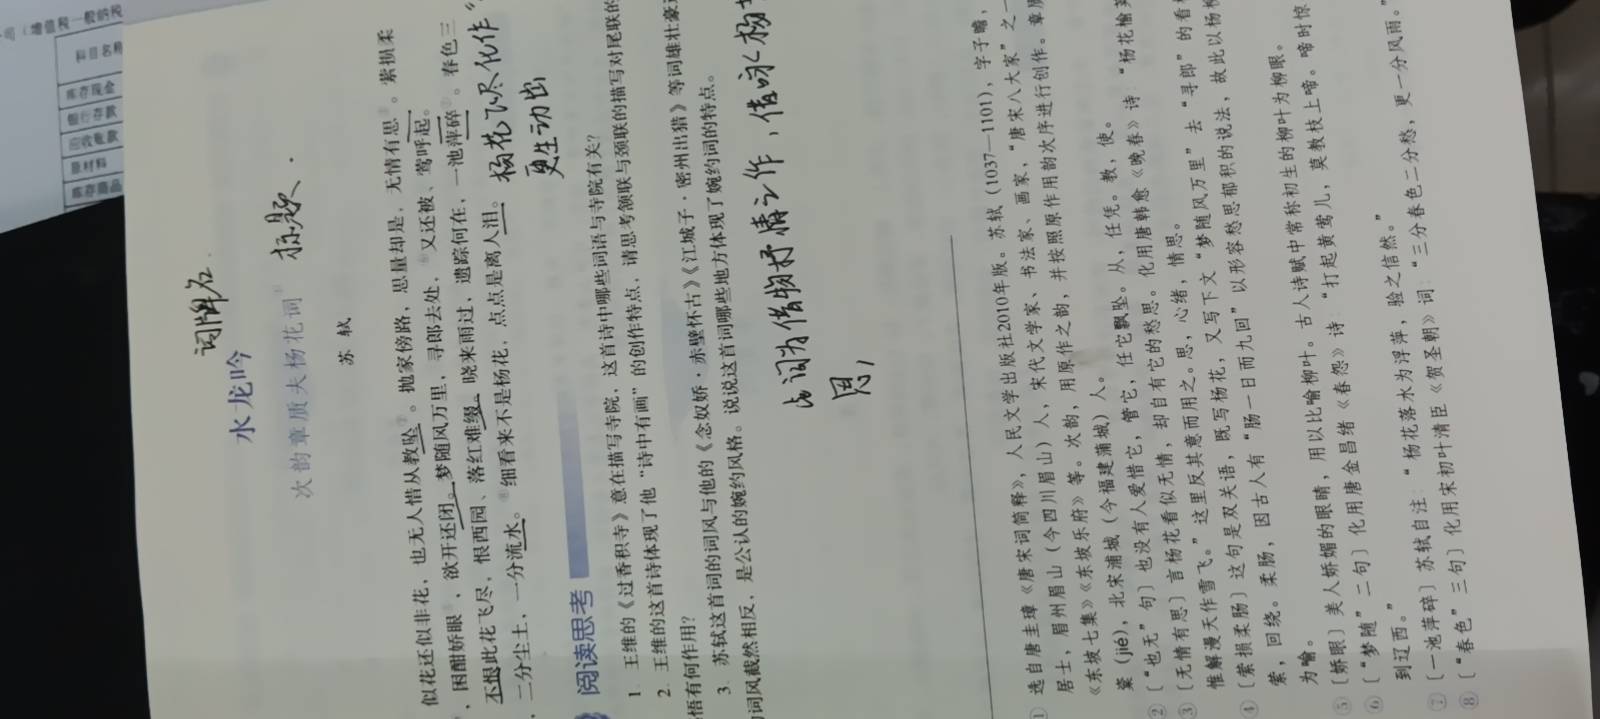 科目名称
库存现金
银行存款
应收账款
原材料
库存商品
词牌名
水龙吟
次韵章质夫杨花词①
标题.
苏 轼
似花还似非花，也无人惜从教坠②。抛家傍路，思量却是，无情有思③。萦损柔
，困酣娇眼⑤，欲开还闭。梦随风万里，寻郎去处，又还被、莺呼起⑥。
不恨此花飞尽，恨西园、落红难缀。晓来雨过，遗踪何在，一池萍碎⑦。春色三
，二分尘土，一分流水。⑧细看来不是杨花，点点是离人泪。
杨花飞尽化作“
更生动出
阅读思考
1. 王维的《过香积寺》意在描写寺院，这首诗中哪些词语与寺院有关？
2. 王维的这首诗体现了他“诗中有画”的创作特点，请思考颔联与颈联的描写对尾联的
悟有何作用？
3. 苏轼这首词的词风与他的《念奴娇·赤壁怀古》《江城子·密州出猎》等词雄壮豪
的词风截然相反，是公认的婉约风格。说说这首词哪些地方体现了婉约词的特点。
此词为借物抒情之作，借咏杨
思，
① 选自唐圭璋《唐宋词简释》，人民文学出版社2010年版。苏轼（1037—1101），字子瞻，
居士，眉州眉山（今四川眉山）人，宋代文学家、书法家、画家，“唐宋八大家”之一
《东坡七集》《东坡乐府》等。次韵，用原作之韵，并按照原作用韵次序进行创作。章质
楶（jié），北宋浦城（今福建蒲城）人。
② 〔“也无”句〕也没有人爱惜它，管它，任它飘坠。从，任凭。教，使。
③ 〔无情有思〕言杨花看似无情，却自有它的愁思。化用唐韩愈《晚春》诗“杨花榆荚
惟解漫天作雪飞。”这里反其意而用之。思，心绪，情思。
④ 〔萦损柔肠〕这句是双关语，既写杨花，又写下文“梦随风万里”去“寻郎”的看
萦，回绕。柔肠，因古人有“肠一日而九回”以形容愁思郁积的说法，故此以杨柳
为喻。
⑤ 〔娇眼〕美人娇媚的眼睛，用以比喻柳叶。古人诗赋中常称初生的柳叶为柳眼。
⑥ 〔“梦随”二句〕化用唐金昌绪《春怨》诗：“打起黄莺儿，莫教枝上啼。啼时惊
到辽西。”
⑦ 〔一池萍碎〕苏轼自注：“杨花落水为浮萍，验之信然。”
⑧ 〔“春色”三句〕化用宋初叶清臣《贺圣朝》词：“三分春色二分愁，更一分风雨。”